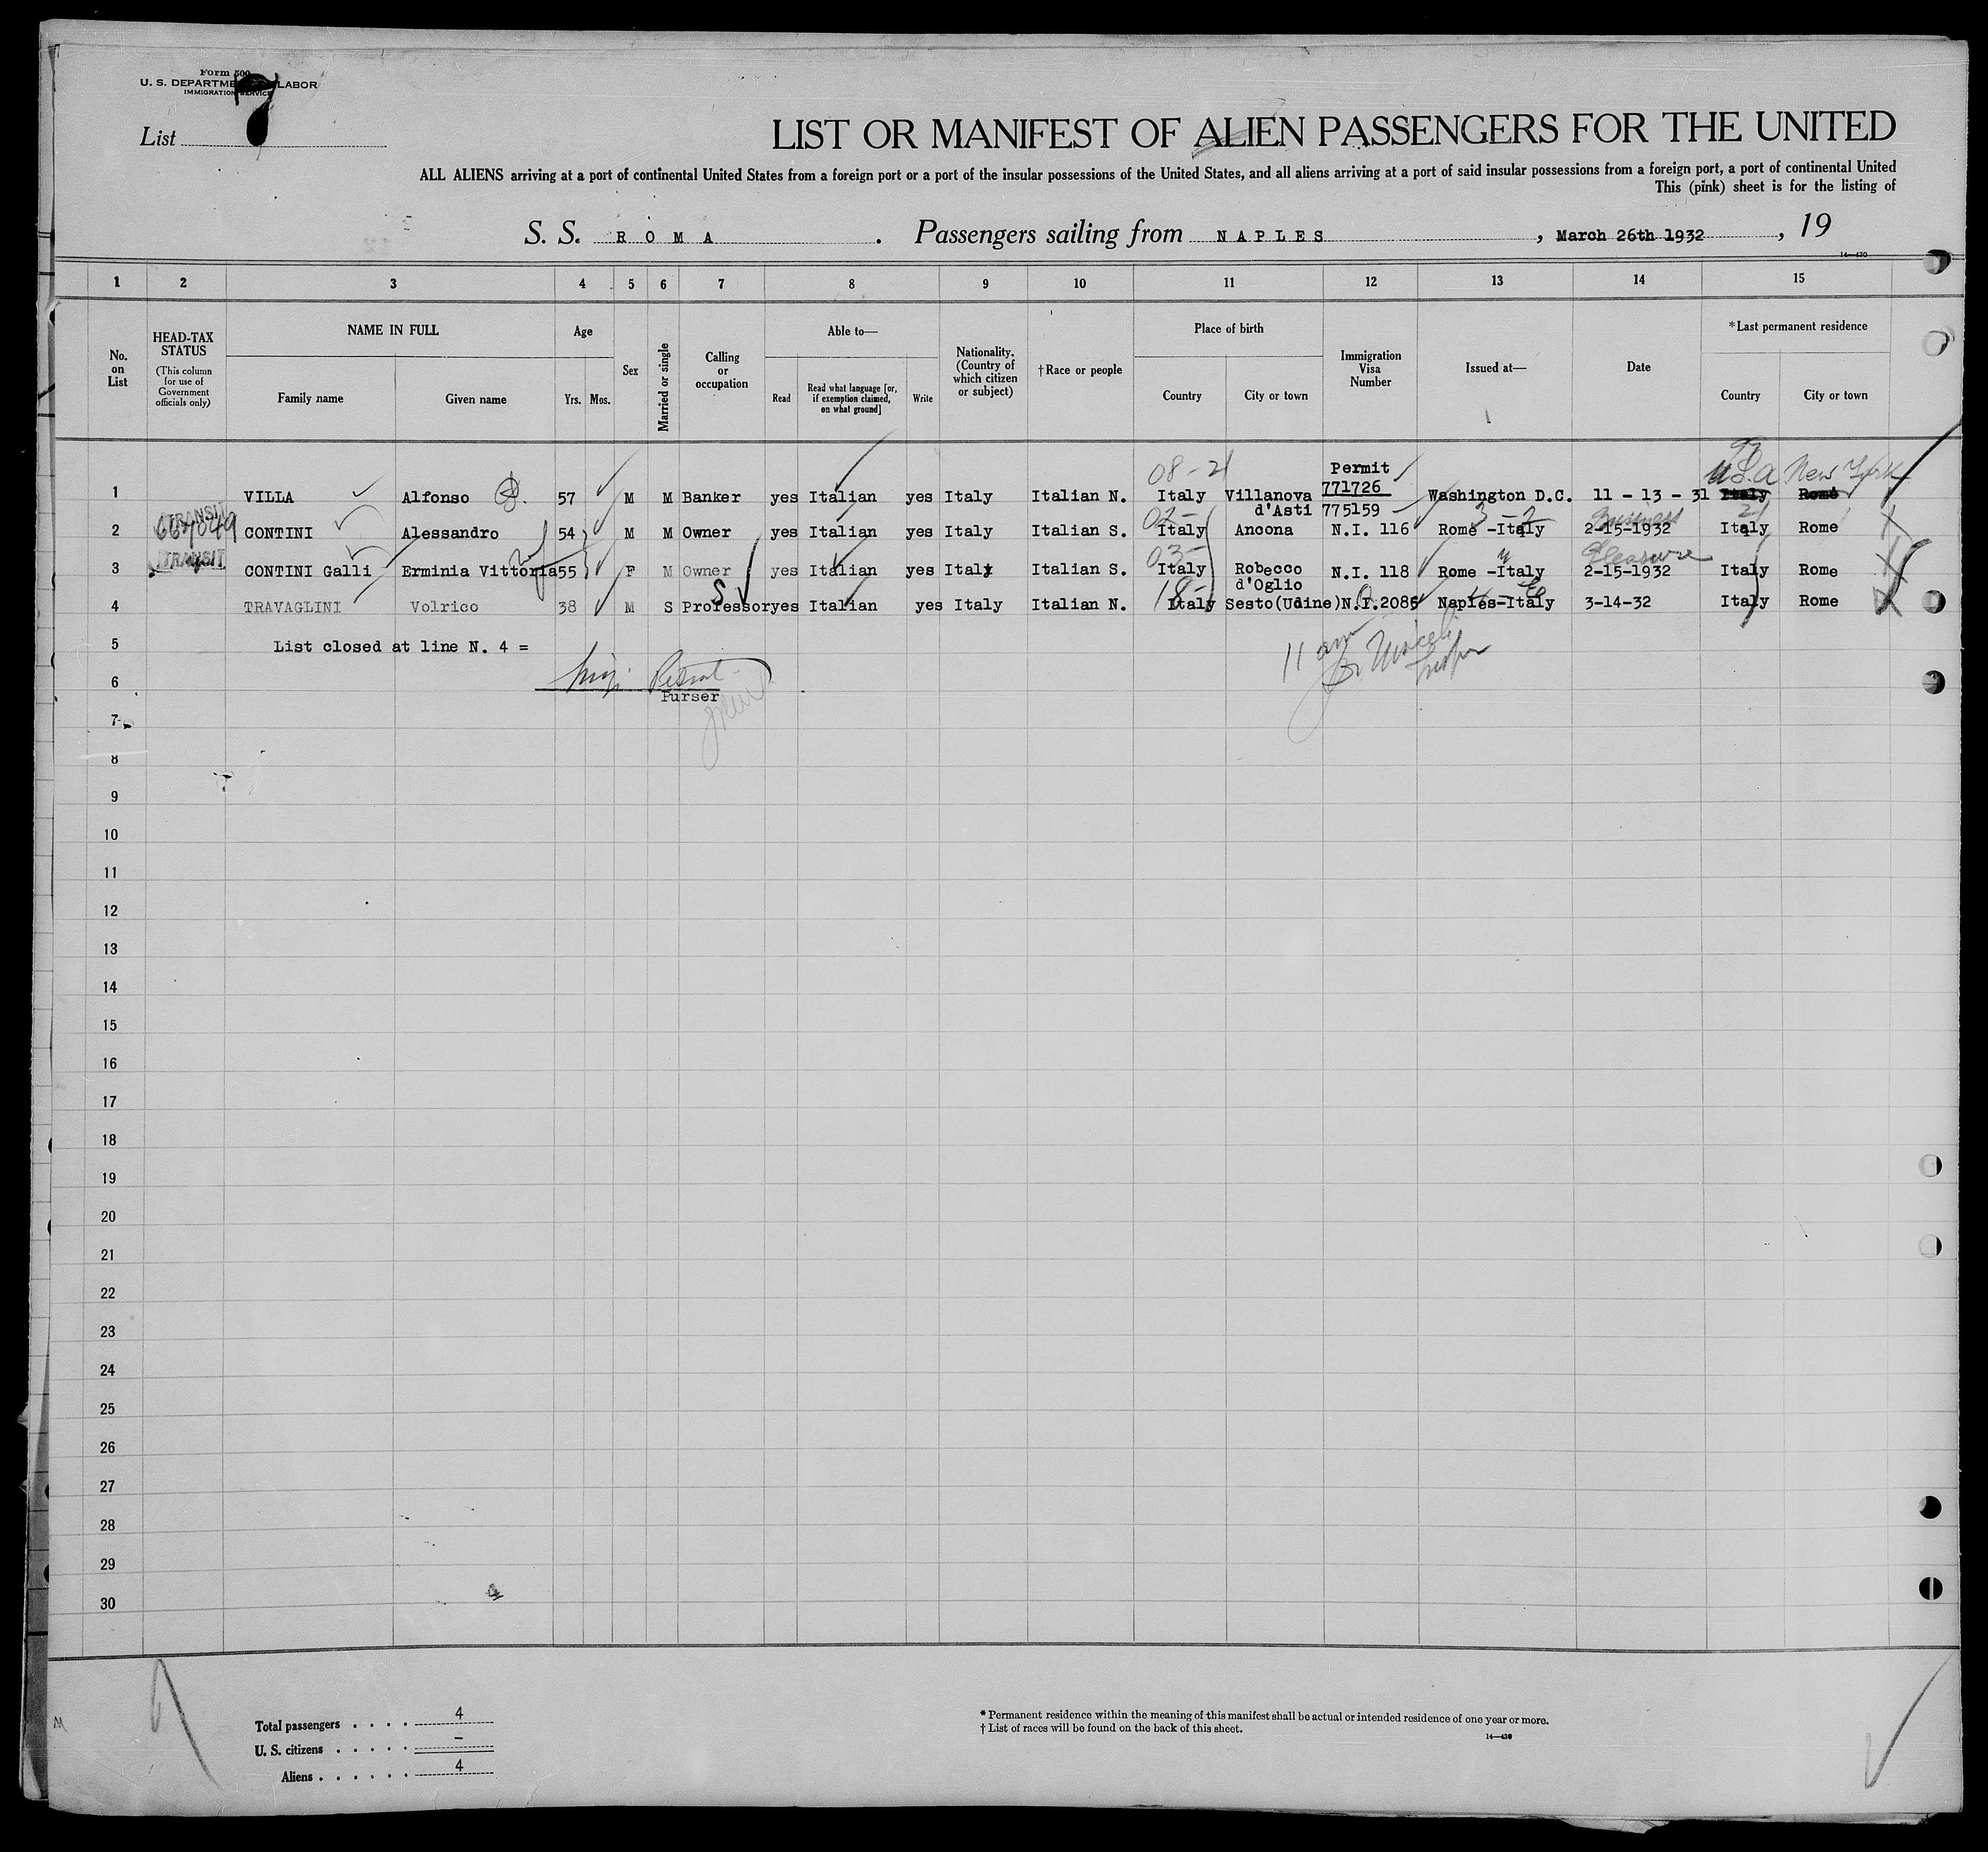 Form 500
U. S. DEPARTMENT OF LABOR
IMMIGRATION SERVICE
List 7
LIST OR MANIFEST OF ALIEN PASSENGERS FOR THE UNITED
ALL ALIENS arriving at a port of continental United States from a foreign port or a port of the insular possessions of the United States, and all aliens arriving at a port of said insular possessions from a foreign port, a port of continental United
This (pink) sheet is for the listing of
S. S. ROMA . Passengers sailing from NAPLES , March 26th 1932 , 19
14—430
1 2 3 4 5 6 7 8 9 10 11 12 13 14 15
No. on List
HEAD-TAX STATUS (This column for use of Government officials only)
NAME IN FULL
Family name Given name
Age
Yrs. Mos.
Sex
Married or single
Calling or occupation
Able to—
Read Read what language [or, if exemption claimed, on what ground] Write
Nationality. (Country of which citizen or subject)
†Race or people
Place of birth
Country City or town
Immigration Visa Number
Issued at—
Date
*Last permanent residence
Country City or town
08-21 Permit U.S.A New York
1 VILLA Alfonso 57 M M Banker yes Italian yes Italy Italian N. Italy Villanova d'Asti 771726 775159 Washington D.C. 11 - 13 - 31 Italy Rome
TRANSIT 664049 02- 3-2 Business 21
2 CONTINI Alessandro 54 M M Owner yes Italian yes Italy Italian S. Italy Ancona N.I. 116 Rome -Italy 2-15-1932 Italy Rome
TRANSIT 03- " Pleasure
3 CONTINI Galli Erminia Vittoria 55 F M Owner yes Italian yes Italy Italian S. Italy Robecco d'Oglio N.I. 118 Rome -Italy 2-15-1932 Italy Rome
S 18-
4 TRAVAGLINI Volrico 38 M S Professor yes Italian yes Italy Italian N. Italy Sesto(Udine) N.I.2085 Naples-Italy 3-14-32 Italy Rome
5 List closed at line N. 4 =
11 am
6
Purser
7
8
9
10
11
12
13
14
15
16
17
18
19
20
21
22
23
24
25
26
27
28
29
30
Total passengers . . . . 4
U. S. citizens . . . . . –
Aliens . . . . . . 4
* Permanent residence within the meaning of this manifest shall be actual or intended residence of one year or more.
† List of races will be found on the back of this sheet.
14—430